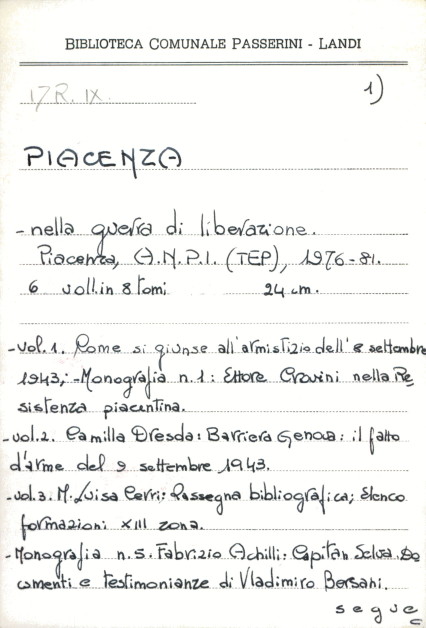 BIBLIOTECA COMUNALE PASSERINI - LANDI
17R. IX
1)
PIACENZA
- nella guerra di liberazione.
Piacenza, A.N.P.I. (TEP), 1976-81.
6 voll. in 8 tomi 24 cm.
- vol. 1. Come si giunse all'armistizio dell'8 settembre
1943; - Monografia n.1: Ettore Cravini nella Re
sistenza piacentina.
- vol. 2. Camilla Dresda: Barriera Genova: il fatto
d'arme del 9 settembre 1943.
- vol. 3. M. Luisa Cerri: Rassegna bibliografica; Elenco
formazioni XIII zona.
- Monografia n. 5. Fabrizio Achilli: Capitan Selva. Do
cumenti e testimonianze di Vladimiro Bersani.
segue